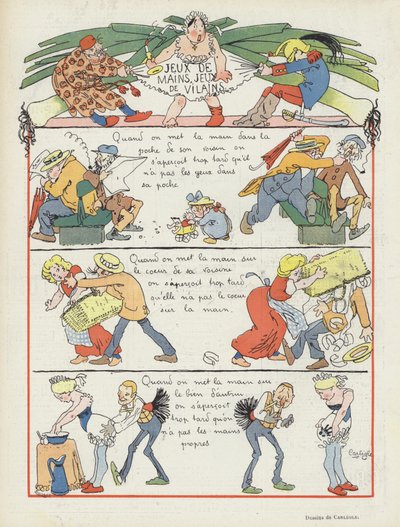 JEUX DE
MAINS, JEUX
DE VILAINS
Quand on met la main dans la
poche de son voisin on
s'aperçoit trop tard qu'il
n'a pas les yeux dans
sa poche.
Quand on met la main sur
le cœur de sa voisine
on s'aperçoit trop tard
qu'elle n'a pas le cœur
sur la main.
Quand on met la main sur
le bien d'autrui
on s'aperçoit
trop tard qu'on
n'a pas les mains
propres
Carlègle
Dessins de CARLÈGLE.